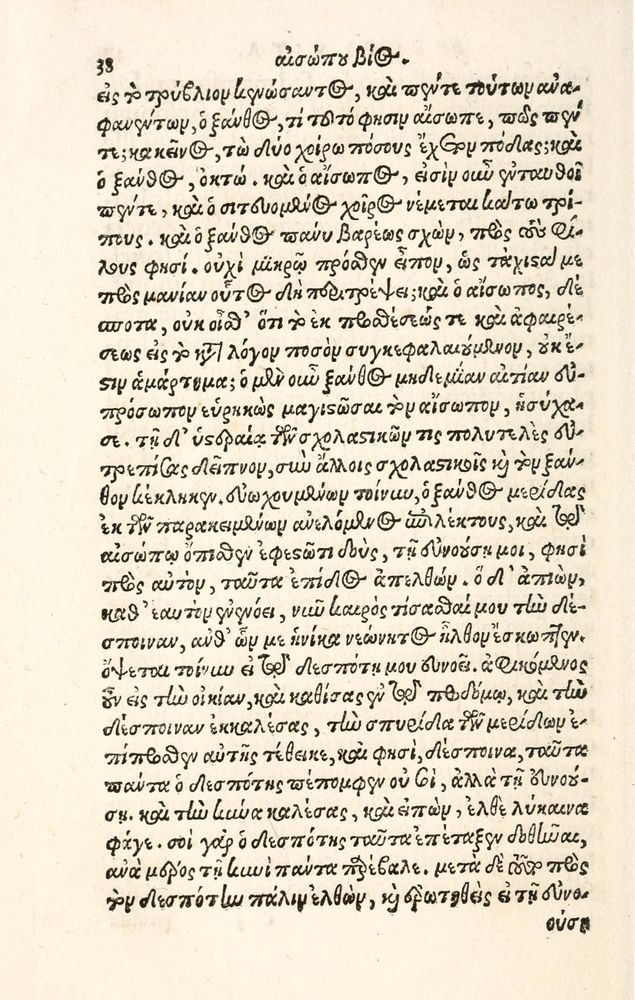 38 αἰσώπου βίος.
εἰς τὸ τρύβλιον κενώσαντος, καὶ πέντε τούτων ἀνα-
φανέντων, ὁ ξάνθος, τί τοῦτό φησιν αἴσωπε, πῶς πέν
τε; κἀκεῖνος, τὼ δύο χοίρω πόσους ἔχετον πόδας; καὶ
ὁ ξάνθος, ὀκτώ. καὶ ὁ αἴσωπος, εἰσὶν οὖν ἐνταυθοῖ
πέντε, καὶ ὁ σιτευόμενος χοῖρος νέμεται κάτω τρί-
πους. καὶ ὁ ξάνθος πάνυ βαρέως σχὼν, πρὸς τοὺς φί-
λους φησί. οὐχὶ μικρῷ πρόσθεν εἶπον, ὡς τάχιστά με
πρὸς μανίαν οὗτος δὴ περιτρέψει; καὶ ὁ αἴσωπος, δέ-
σποτα, οὐκ οἶσθ' ὅτι τὸ ἐκ προσθέσεώς τε καὶ ἀφαιρέ-
σεως εἰς τὸ κατὰ λόγον ποσὸν συγκεφαλαιούμενον, οὐκ ἔ-
στιν ἁμάρτημα; ὁ μὲν οὖν ξάνθος μηδεμίαν αἰτίαν εὐ-
πρόσωπον εὑρηκὼς μαστιγῶσαι τὸν αἴσωπον, ἡσύχα-
σε. τῇ δ' ὑστεραίᾳ τῶν σχολαστικῶν τις πολυτελὲς εὐ-
τρεπίσας δεῖπνον, σὺν ἄλλοις σχολαστικοῖς καὶ τὸν ξάν-
θον κέκληκεν. εὐωχουμένων τοίνυν, ὁ ξάνθος μερίδας
ἐκ τῶν παρακειμένων ἀνελόμενος ἐπιλέκτους, καὶ τῷ
αἰσώπῳ ὄπισθεν ἐφεστῶτι δοὺς, τῇ εὐνούσῃ μοι, φησὶ
πρὸς αὐτὸν, ταῦτα ἐπίδος ἀπελθών. ὁ δ' ἀπιὼν,
καθ' ἑαυτὸν ἐνενόει, νῦν καιρὸς τίσασθαί μου τὴν δέ-
σποιναν, ἀνθ' ὧν με ἡνίκα νεώνητος ἦλθον ἔσκωπτεν.
ὄψεται τοίνυν εἰ τῷ δεσπότῃ μου εὐνοεῖ. ἀφικόμενος
οὖν εἰς τὴν οἰκίαν, καὶ καθίσας ἐν τῷ προδόμῳ, καὶ τὴν
δέσποιναν ἐκκαλέσας, τὴν σπυρίδα τῶν μερίδων ἔ-
πίπροσθεν αὐτῆς τέθεικε, καὶ φησὶ, δέσποινα, ταῦτα
πάντα ὁ δεσπότης πέπομφεν οὐ σοὶ, ἀλλὰ τῇ εὐνού-
σῃ. καὶ τὴν κύνα καλέσας, καὶ εἰπὼν, ἐλθὲ λύκαινα
φάγε. σοὶ γὰρ ὁ δεσπότης ταῦτα ἐπέταξεν δοθῆναι,
ἀνὰ μέρος τῇ κυνὶ πάντα παρέβαλε. μετὰ δὲ τοῦτο πρὸς
τὸν δεσπότην πάλιν ἐλθὼν, καὶ ἐρωτηθεὶς εἰ τῇ εὐνο-
ούσῃ